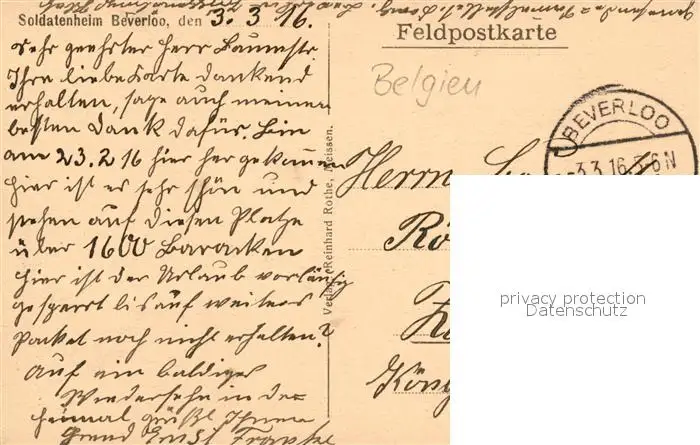 Soldatenheim Beverloo, den 3. 3 16.
Feldpostkarte
Belgien
Sehr geehrter Herr Baumstr.
Ihre liebe Karte dankend
erhalten, sage auch meinen
besten Dank dafür. Bin
am 23.2 16 hier her gekommen
hier ist es sehr schön und
stehen auf diesen Platze
über 1600 Baracken
hier ist der Urlaub vorläufig
gesperrt bis auf weiters
Packet noch nicht erhalten?
Auf ein baldiges
Wiedersehn in der
Heimat grüßt Ihnen
Ernst Franke
Verlag: Reinhard Rothe, Meissen.
BEVERLOO
3.3.16. 5-6 N
Herrn
privacy protection
Datenschutz